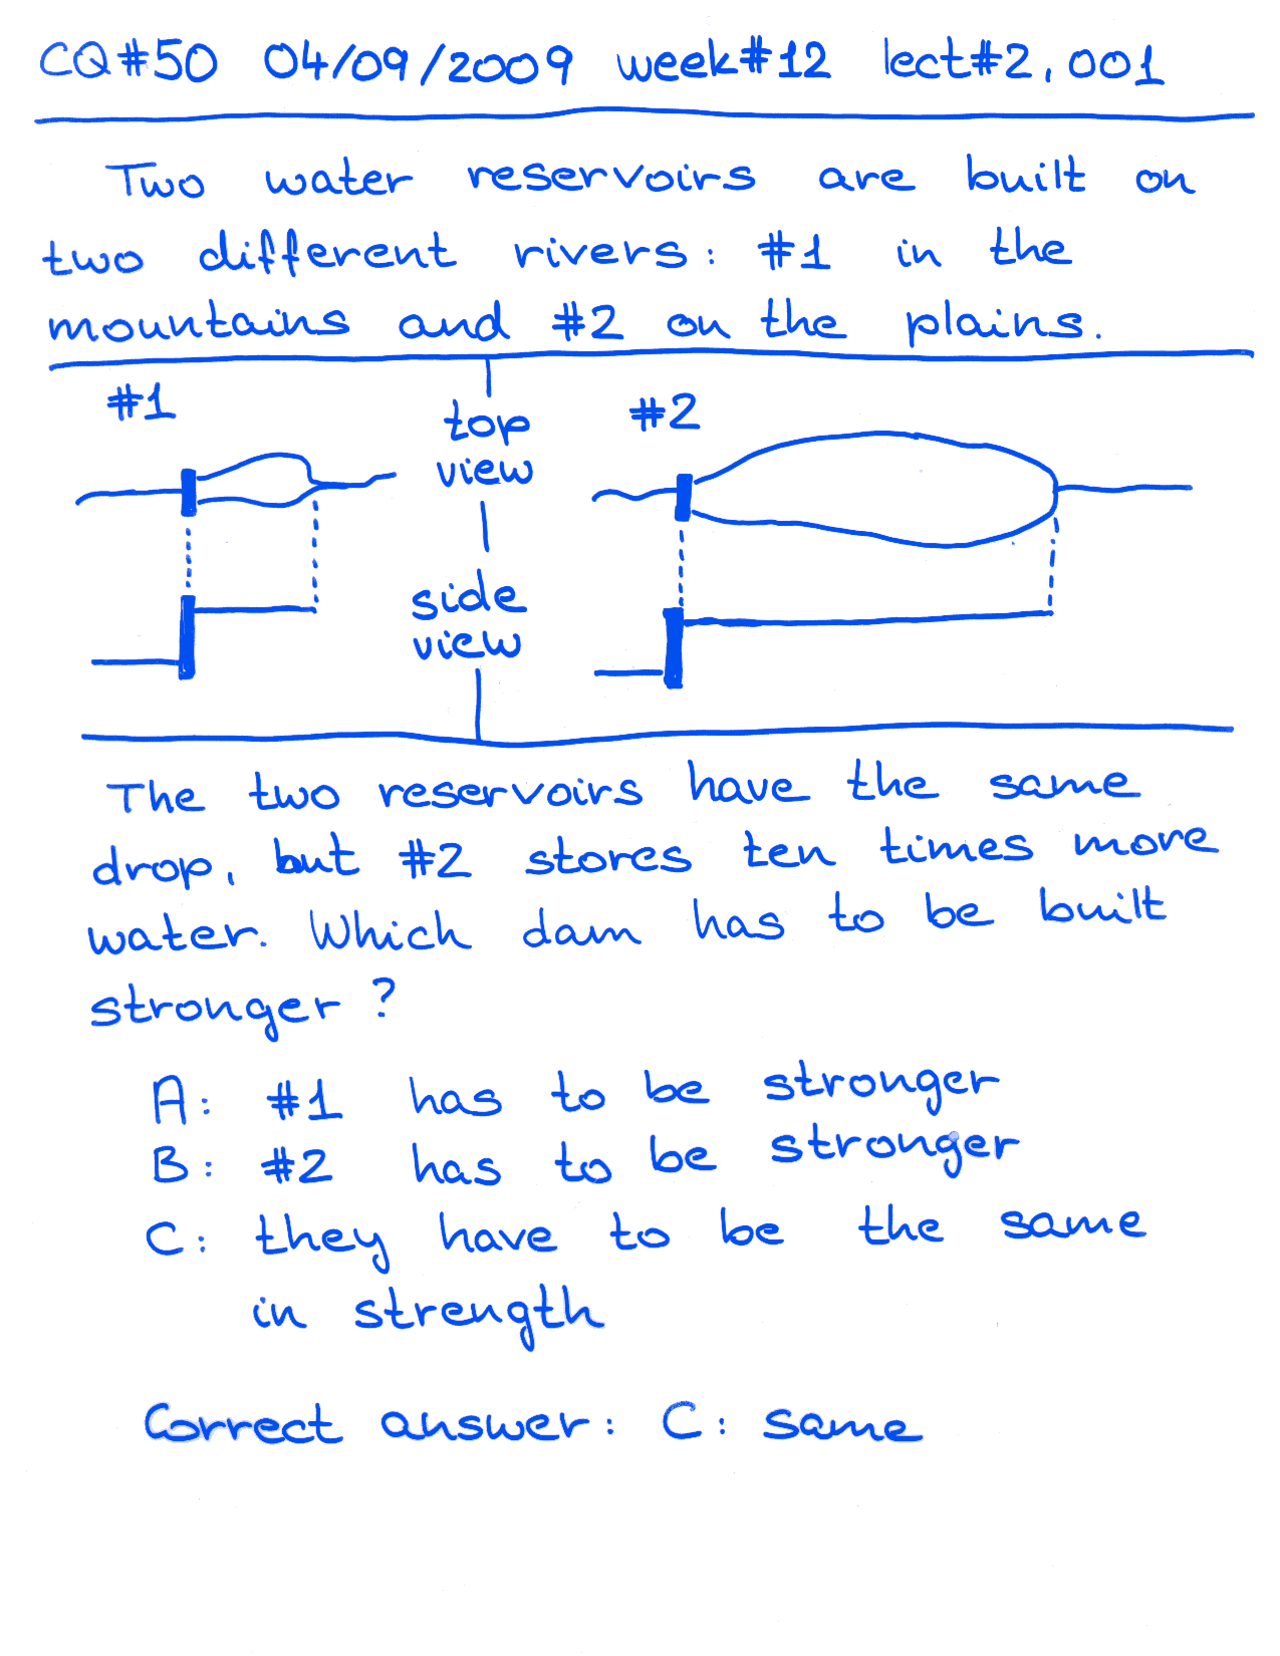 CQ#50 04/09/2009 week#12 lect#2,001
Two water reservoirs are built on
two different rivers: #1 in the
mountains and #2 on the plains.
#1
top
view
#2
side
view
The two reservoirs have the same
drop, but #2 stores ten times more
water. Which dam has to be built
stronger?
A: #1 has to be stronger
B: #2 has to be stronger
C: they have to be the same
in strength
Correct answer: C: same